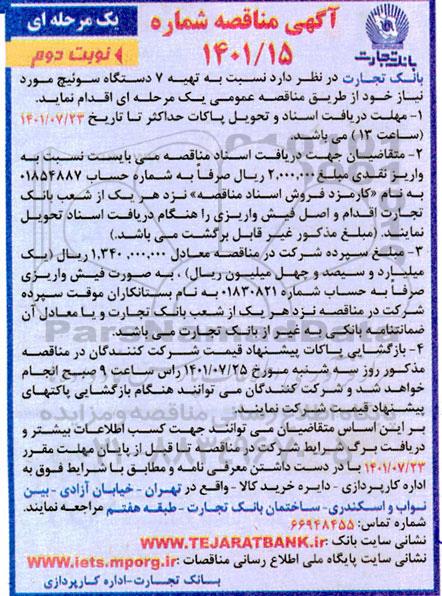 آگهی مناقصه شماره
۱۴۰۱/۱۵
یک مرحله ای
نوبت دوم
بانک تجارت
بانک تجارت در نظر دارد نسبت به تهیه ۷ دستگاه سوئیچ مورد
نیاز خود از طریق مناقصه عمومی یک مرحله ای اقدام نماید.
۱- مهلت دریافت اسناد و تحویل پاکات حداکثر تا تاریخ ۱۴۰۱/۰۷/۲۳
(ساعت ۱۳) می باشد.
۲- متقاضیان جهت دریافت اسناد مناقصه می بایست نسبت به
واریز نقدی مبلغ ۲,۰۰۰,۰۰۰ ریال صرفاً به شماره حساب ۰۱۸۵۴۸۸۷
به نام «کارمزد فروش اسناد مناقصه» نزد هر یک از شعب بانک
تجارت اقدام و اصل فیش واریزی را هنگام دریافت اسناد تحویل
نمایند. (مبلغ مذکور غیر قابل برگشت می باشد.)
۳- مبلغ سپرده شرکت در مناقصه معادل ۱,۳۴۰,۰۰۰,۰۰۰ ریال (یک
میلیارد و سیصد و چهل میلیون ریال) ، به صورت فیش واریزی
صرفاً به حساب شماره ۰۱۸۳۰۸۲۱ به نام بستانکاران موقت سپرده
شرکت در مناقصه نزد هر یک از شعب بانک تجارت و یا معادل آن
ضمانتنامه بانکی به غیر از بانک تجارت می باشد.
۴- بازگشایی پاکات پیشنهاد قیمت شرکت کنندگان در مناقصه
مذکور روز سه شنبه مورخ ۱۴۰۱/۰۷/۲۵ راس ساعت ۹ صبح انجام
خواهد شد و شرکت کنندگان می توانند هنگام بازگشایی پاکتهای
پیشنهاد قیمت شرکت نمایند.
بر این اساس متقاضیان می توانند جهت کسب اطلاعات بیشتر و
دریافت برگ شرایط شرکت در مناقصه تا قبل از پایان مهلت مقرر
۱۴۰۱/۰۷/۲۳ با در دست داشتن معرفی نامه و مطابق با شرایط فوق به
اداره کارپردازی - دایره خرید کالا - واقع در تهران - خیابان آزادی - بین
نواب و اسکندری- ساختمان بانک تجارت - طبقه هفتم مراجعه نمایند.
شماره تماس: ۶۶۹۴۸۴۵۵
نشانی سایت بانک :WWW.TEJARATBANK.ir
نشانی سایت پایگاه ملی اطلاع رسانی مناقصات :WWW.iets.mporg.ir
بانک تجارت-اداره کارپردازی